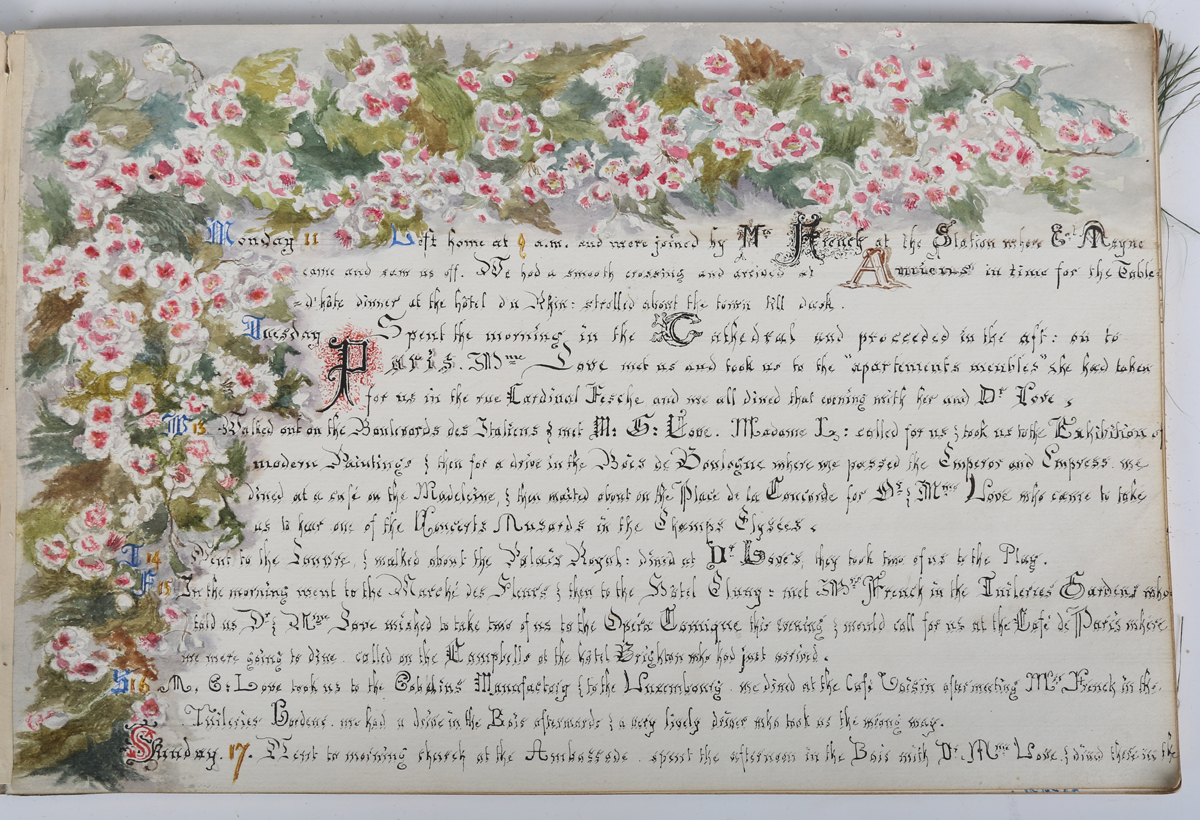 Monday 11 Left home at 9 a.m. and were joined by Mr French at the Station where Mayne
came and saw us off. We had a smooth crossing and arrived at Amiens in time for the Table
=d'hôte dinner at the hôtel du Rhin: strolled about the town till dusk.
Tuesday Spent the morning in the Cathedral and proceeded in the aft: on to
Paris. Mme Love met us and took us to the "apartements meubles" she had taken
for us in the rue Cardinal Fesche and we all dined that evening with her and Dr Love,
W 13 Walked out on the Boulevards des Italiens & met M: G: Love. Madame L: called for us & took us to the Exhibition of
modern Paintings & then for a drive in the Bois de Boulogne where we passed the Emperor and Empress. we
dined at a café on the Madeleine, & then waited about on the Place de la Concorde for Dr & Mme Love who came to take
us to hear one of the Concerts Musards in the Champs Elysées.
T 14 Went to the Louvre, & walked about the Palais Royal: dined at Dr Love's, they took two of us to the Play.
F 15 In the morning went to the Marché des Fleurs & then to the Hôtel Cluny: met Mr French in the Tuileries Gardens who
told us Dr & Mme Love wished to take two of us to the Opera Comique this evening & would call for us at the Café de Paris where
we were going to dine. called on the Campbells at the hôtel Brighton who had just arrived.
S 16 M. G: Love took us to the Goblins Manufactory & to the Luxembourg. we dined at the Café Voisin after meeting Mr French in the
Tuileries Gardens. we had a drive in the Bois afterwards & a very lively driver who took us the wrong way.
Sunday. 17. Went to morning church at the Ambassade. spent the afternoon in the Bois with Dr. Mme Love & dined there in the